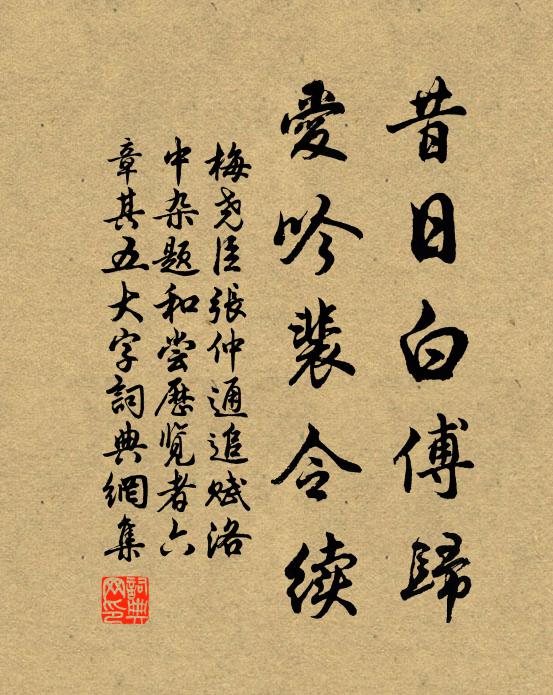 昔日白傅歸
愛吟裴令續
梅尧臣張仲通追赋洛
中杂题和尝歷览者六
章其五大字詞典網集
詞典网印